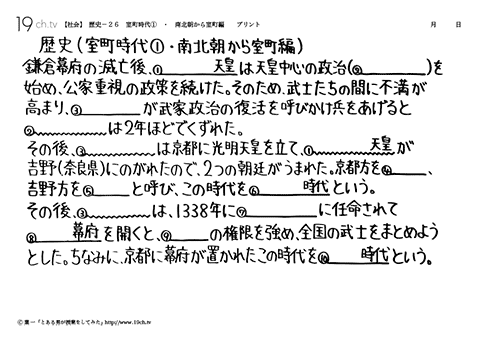 19ch.tv 【社会】 歴史－２６ 室町時代① ・ 南北朝から室町編 プリント 月 日
歴史(室町時代①・南北朝から室町編)
鎌倉幕府の滅亡後、① 天皇は天皇中心の政治(② )を
始め、公家重視の政策を続けた。そのため、武士たちの間に不満が
高まり、③ が武家政治の復活を呼びかけ兵をあげると
② は2年ほどでくずれた。
その後、③ は京都に光明天皇を立て、① 天皇が
吉野(奈良県)にのがれたので、2つの朝廷がうまれた。京都方を④ 、
吉野方を⑤ と呼び、この時代を⑥ 時代という。
その後、③ は、1338年に⑦ に任命されて
⑧ 幕府を開くと、⑨ の権限を強め、全国の武士をまとめよう
とした。ちなみに、京都に幕府が置かれたこの時代を⑩ 時代という。
Ⓒ 葉一「とある男が授業をしてみた」http://www.19ch.tv